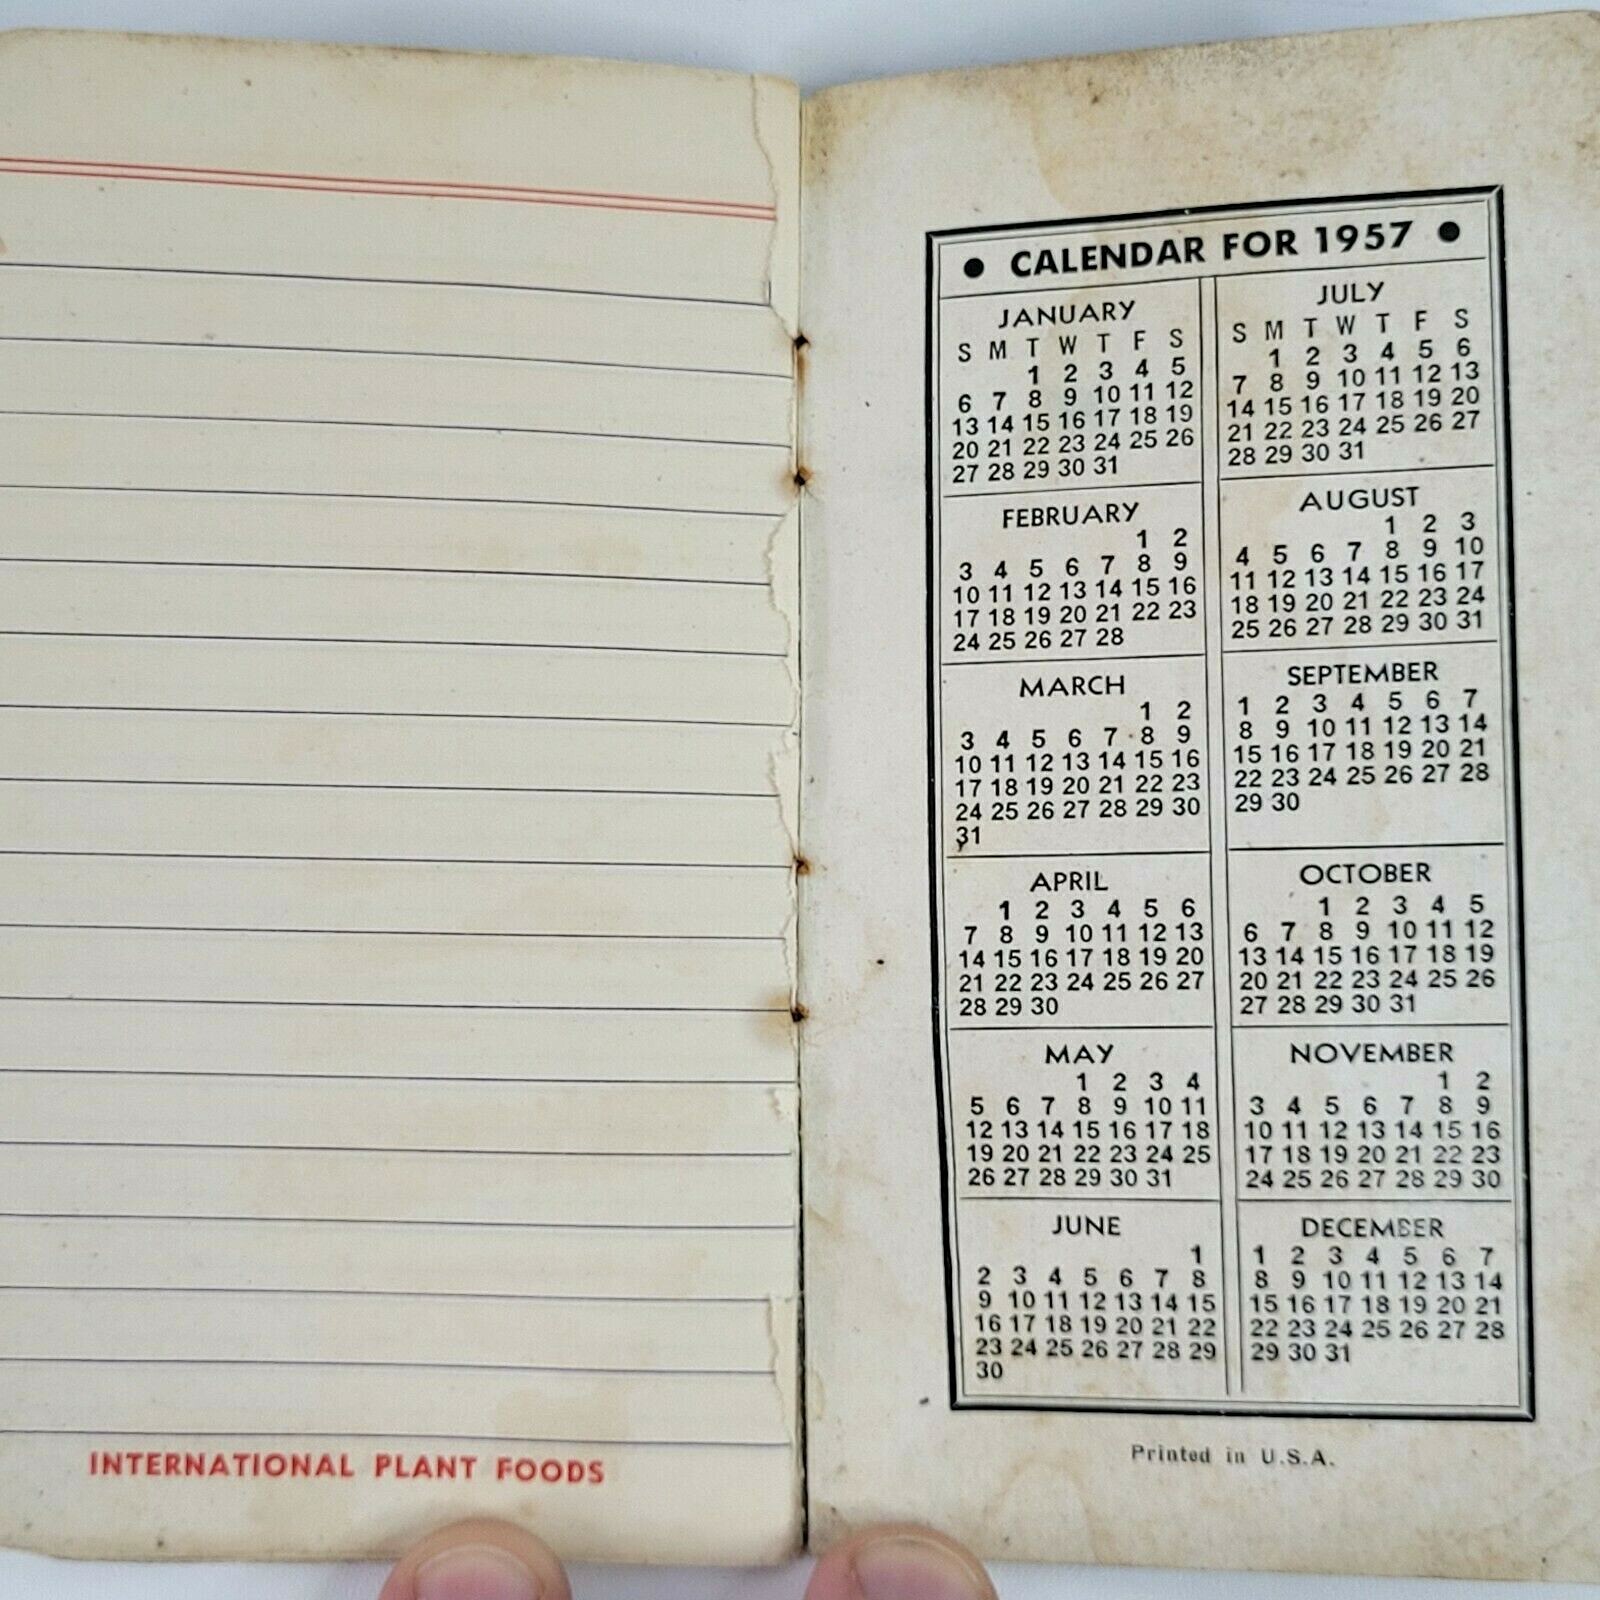 INTERNATIONAL PLANT FOODS
● CALENDAR FOR 1957 ●
JANUARY
S M T W T F S
1 2 3 4 5
6 7 8 9 10 11 12
13 14 15 16 17 18 19
20 21 22 23 24 25 26
27 28 29 30 31
FEBRUARY
1 2
3 4 5 6 7 8 9
10 11 12 13 14 15 16
17 18 19 20 21 22 23
24 25 26 27 28
MARCH
1 2
3 4 5 6 7 8 9
10 11 12 13 14 15 16
17 18 19 20 21 22 23
24 25 26 27 28 29 30
31
APRIL
1 2 3 4 5 6
7 8 9 10 11 12 13
14 15 16 17 18 19 20
21 22 23 24 25 26 27
28 29 30
MAY
1 2 3 4
5 6 7 8 9 10 11
12 13 14 15 16 17 18
19 20 21 22 23 24 25
26 27 28 29 30 31
JUNE
1
2 3 4 5 6 7 8
9 10 11 12 13 14 15
16 17 18 19 20 21 22
23 24 25 26 27 28 29
30
JULY
S M T W T F S
1 2 3 4 5 6
7 8 9 10 11 12 13
14 15 16 17 18 19 20
21 22 23 24 25 26 27
28 29 30 31
AUGUST
1 2 3
4 5 6 7 8 9 10
11 12 13 14 15 16 17
18 19 20 21 22 23 24
25 26 27 28 29 30 31
SEPTEMBER
1 2 3 4 5 6 7
8 9 10 11 12 13 14
15 16 17 18 19 20 21
22 23 24 25 26 27 28
29 30
OCTOBER
1 2 3 4 5
6 7 8 9 10 11 12
13 14 15 16 17 18 19
20 21 22 23 24 25 26
27 28 29 30 31
NOVEMBER
1 2
3 4 5 6 7 8 9
10 11 12 13 14 15 16
17 18 19 20 21 22 23
24 25 26 27 28 29 30
DECEMBER
1 2 3 4 5 6 7
8 9 10 11 12 13 14
15 16 17 18 19 20 21
22 23 24 25 26 27 28
29 30 31
Printed in U.S.A.